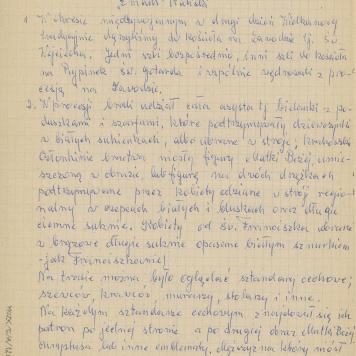 1. W okresie międzywojennym w drugi dzień Wielkanocy
tradycyjnie dążyliśmy do kościoła na Zawodzie tj. św.
Wojciecha. Jedni szli bezpośrednio, inni szli do kościoła
na Rypinek św. Gotarda i wspólnie wędrowali z pro-
cesją na Zawodzie.
2. W procesji brali udział cała asysta tj. bielanki z po-
duszkami i szarfami, które podtrzymywały dziewczynki
w białych sukienkach, albo ubrane w stroje krakowskie
Członkinie bractwa niosły figury Matki Bożej umie-
szczoną w obrazie, lub figurę na dwóch drążkach
podtrzymywane przez kobiety odziane w strój regio-
nalny w czepcach białych i bluzkach oraz długie
ciemne suknie. Kobiety od św. Franciszka ubrane
w brązowe długie suknie opasane białym sznurkiem
- jak Franciszkanie.
Na trasie można było oglądać sztandary cechowe:
szewców, krawców, murarzy, stolarzy i inne.
Na każdym sztandarze cechowym znajdował się ich
patron po jednej stronie a po drugiej obraz Matki Bożej
Chrystusa lub inne emblematy. Mężczyzna który niósł